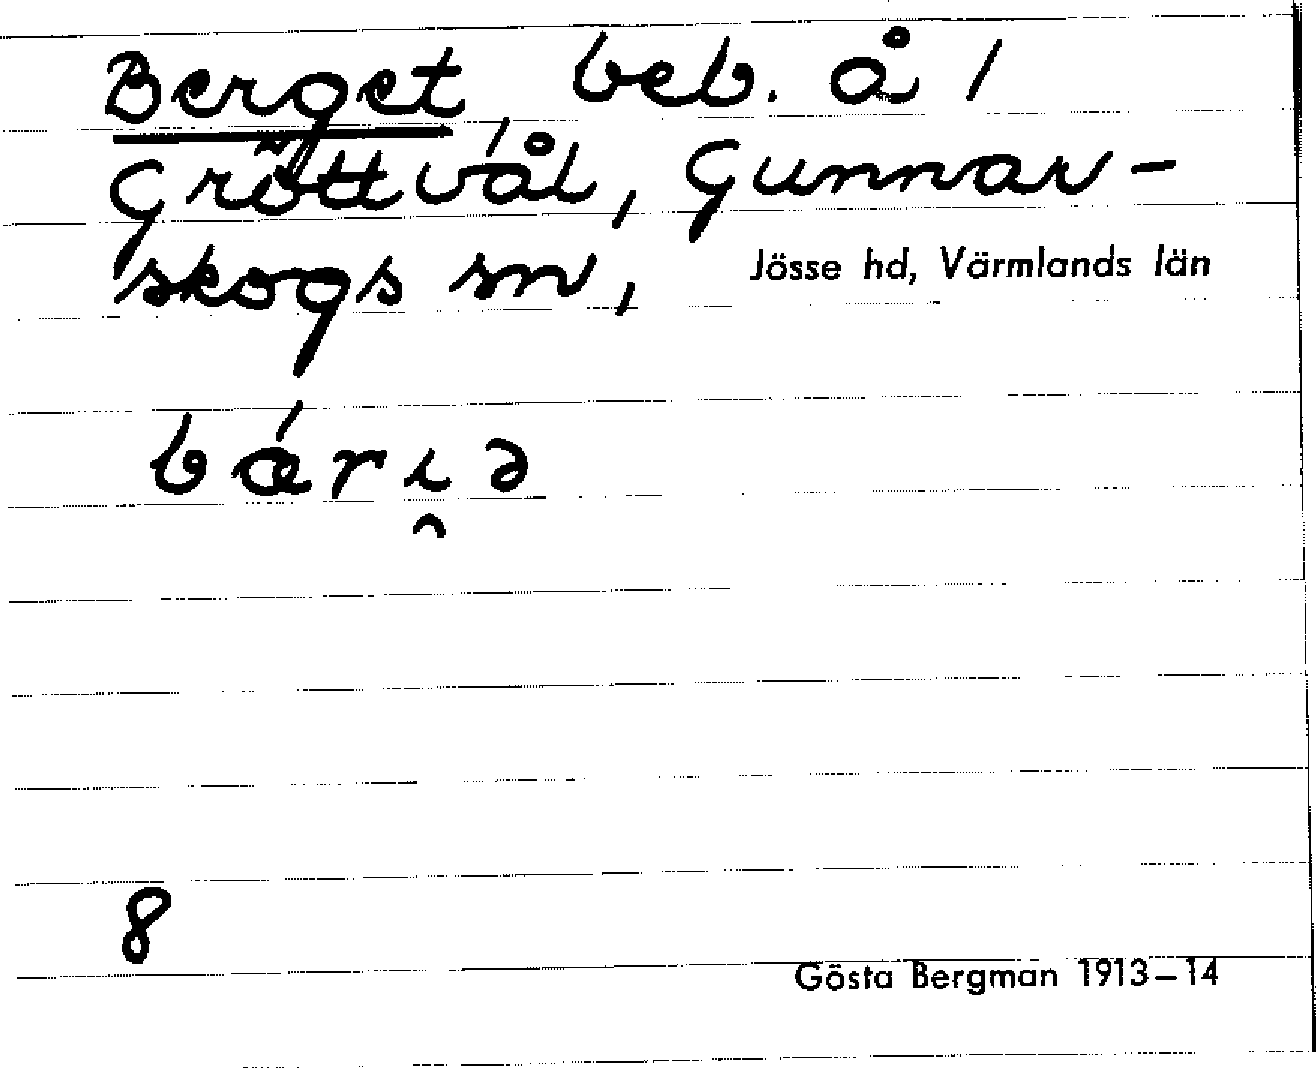 Berget, beb. å 1
Gröttvål, Gunnar-
skogs sn, Jösse hd, Värmlands län
bǽri̯ə
8
Gösta Bergman 1913–14